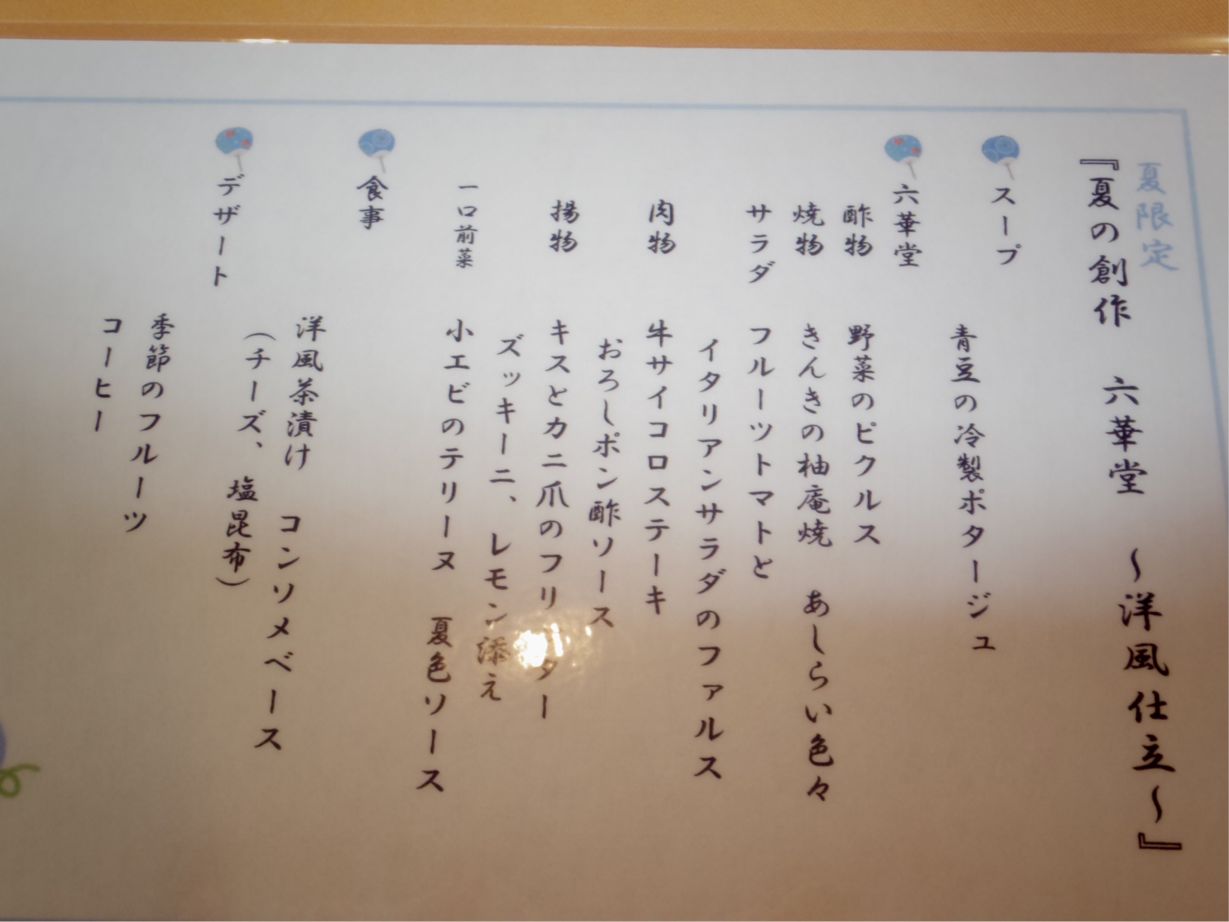 夏限定
『夏の創作　六華堂　～洋風仕立～』
スープ
青豆の冷製ポタージュ
六華堂
酢物　野菜のピクルス
焼物　きんきの柚庵焼　あしらい色々
サラダ　フルーツトマトと
イタリアンサラダのファルス
肉物　牛サイコロステーキ
おろしポン酢ソース
揚物　キスとカニ爪のフリッター
ズッキーニ、レモン添え
一口前菜　小エビのテリーヌ　夏色ソース
食事
洋風茶漬け　コンソメベース
（チーズ、塩昆布）
デザート
季節のフルーツ
コーヒー